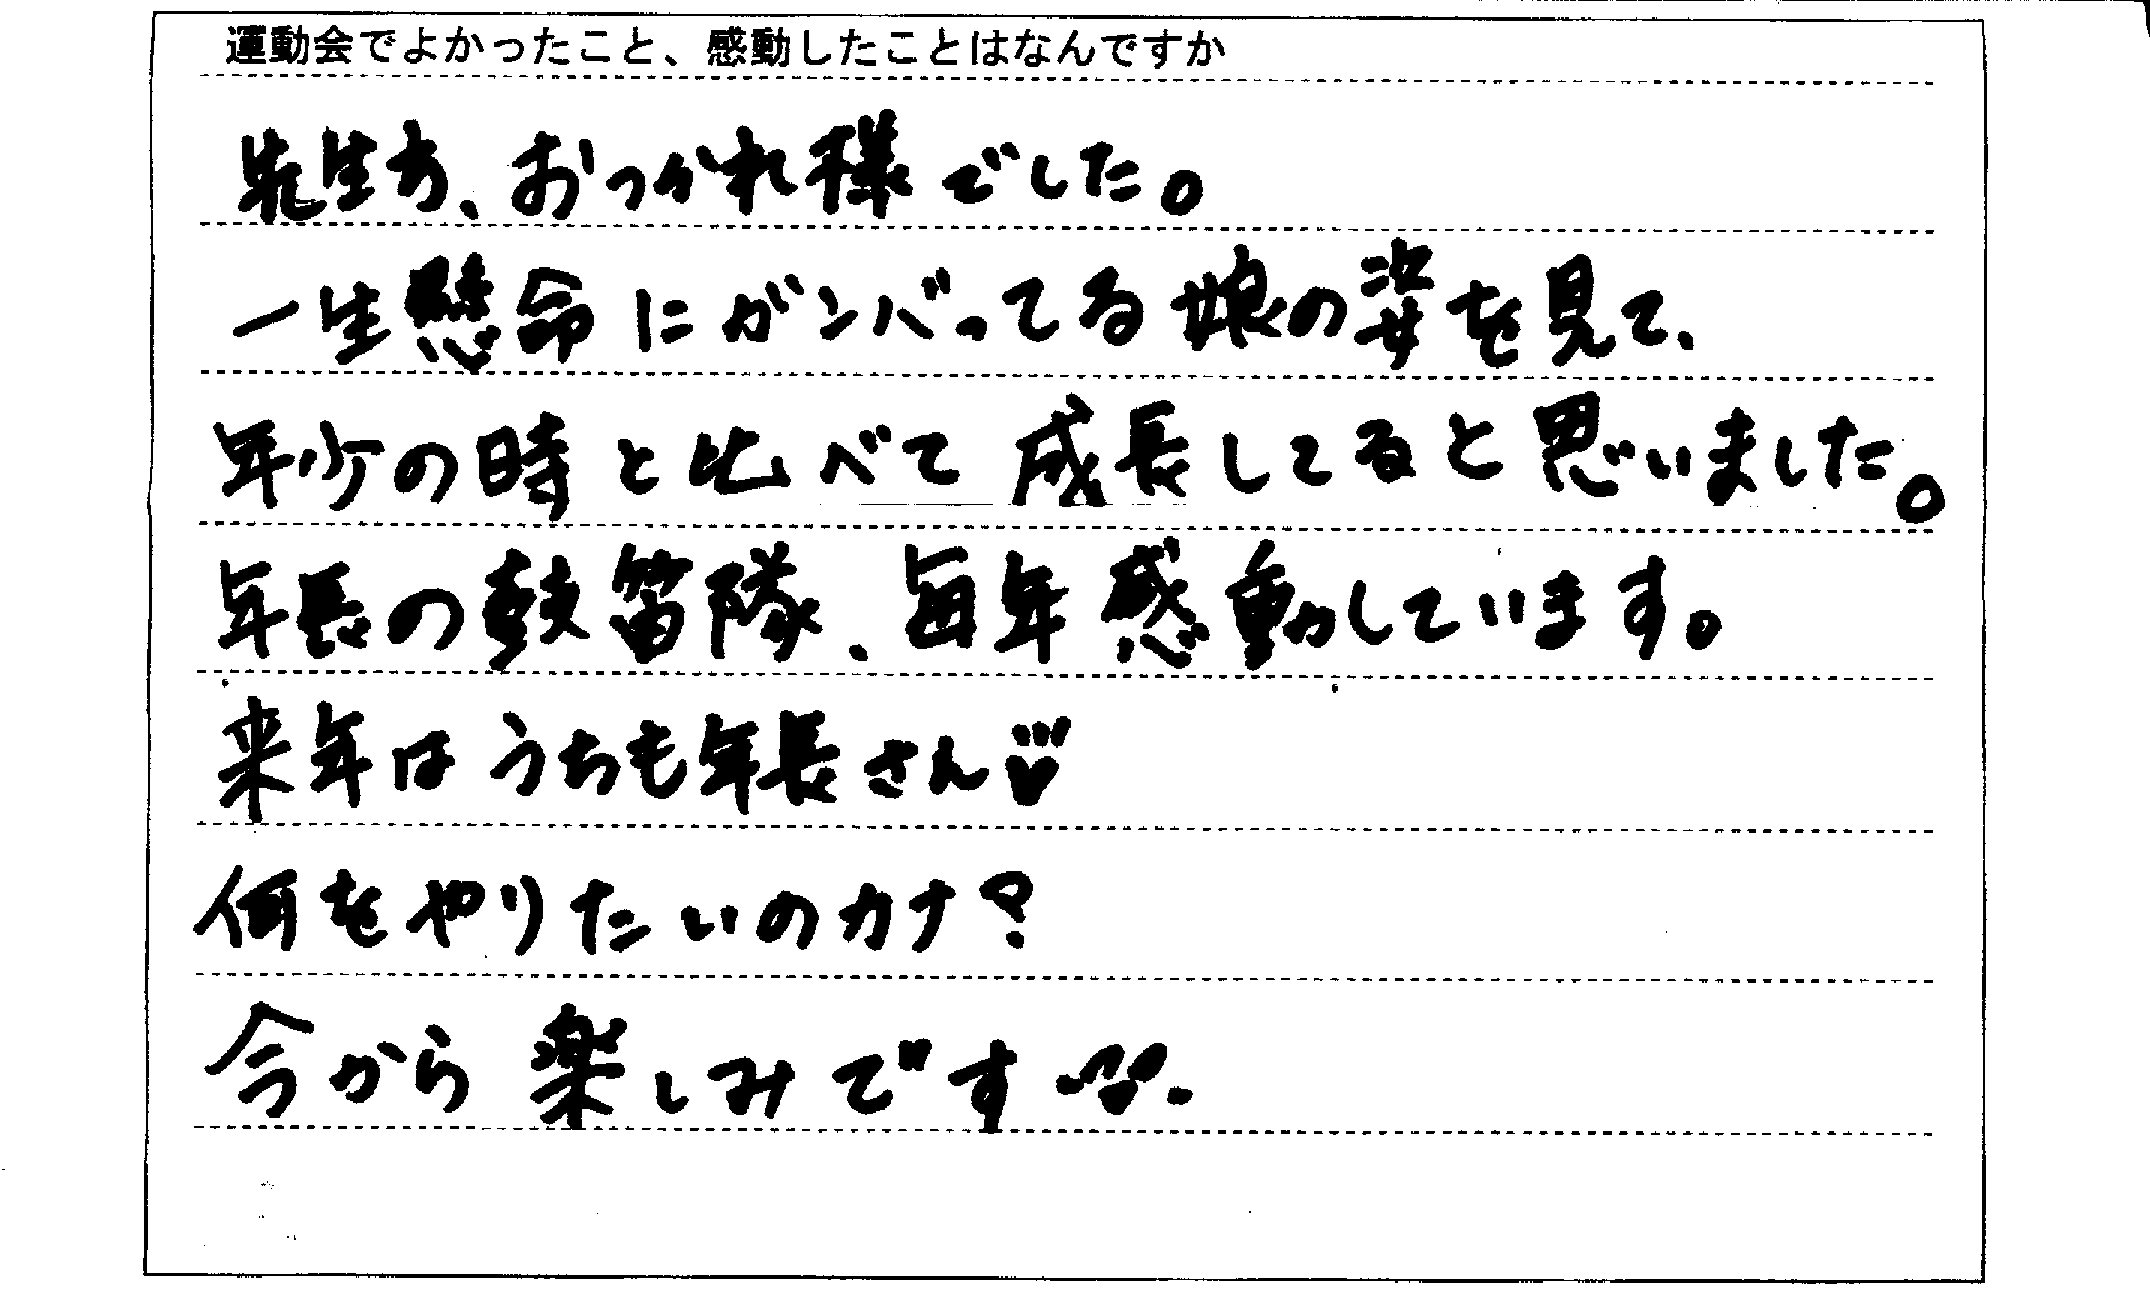 運動会でよかったこと、感動したことはなんですか
先生方、おつかれ様でした。
一生懸命にガンバってる娘の姿を見て、
年少の時と比べて成長してると思いました。
年長の鼓笛隊、毎年感動しています。
来年はうちも年長さん♡
何をやりたいのカナ?
今から楽しみです